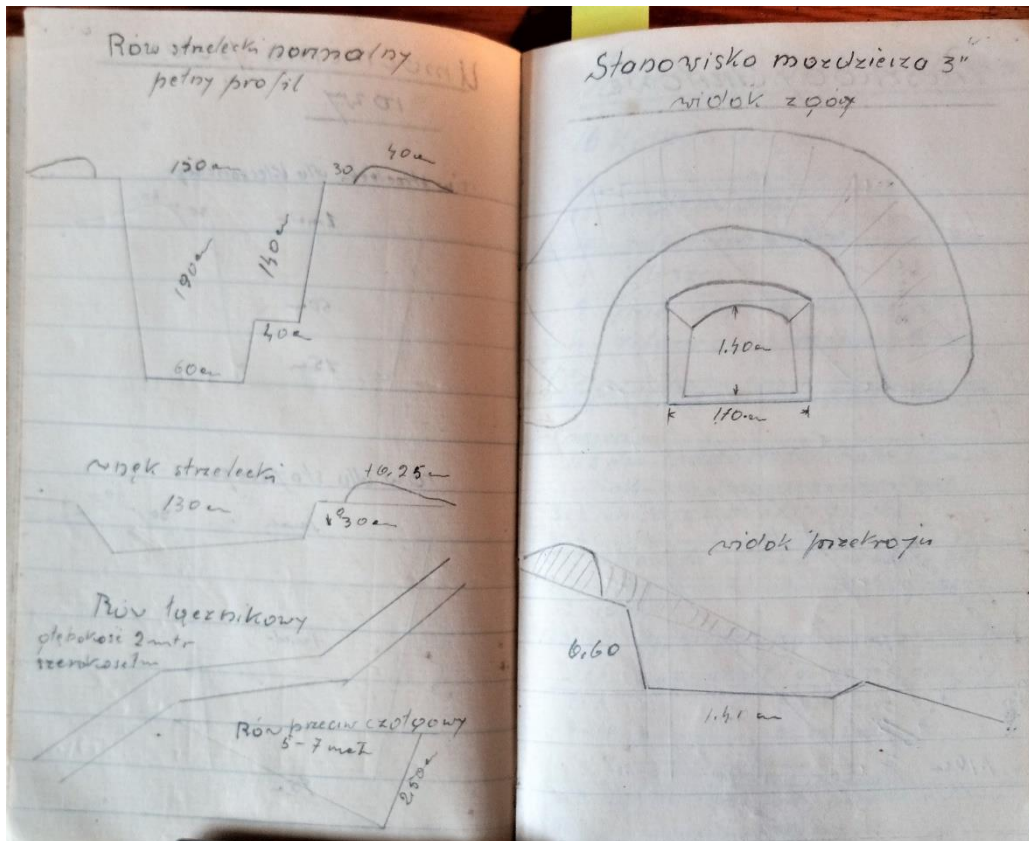 Rów strzelecki normalny
pełny profil
150 cm
30
40 cm
190 cm
140 cm
40 cm
60 cm
wnęk strzelecki
130 cm
+0,25 cm
30 cm
Rów łącznikowy
głębokość 2 mtr
szerokość 1 m
Rów przeciwczołgowy
5-7 met
250 cm
Stanowisko mozdzieza 3"
widok z góry
1.40 cm
110 cm
widok przekroju
0.60
cm